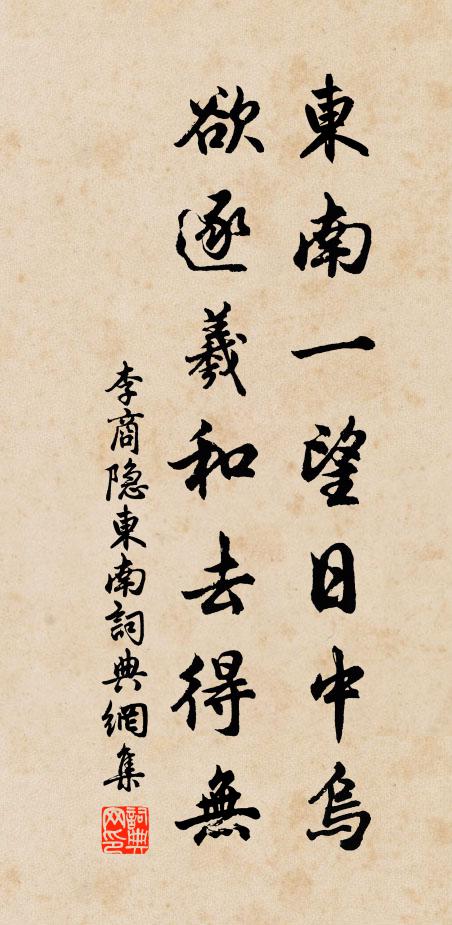 東南一望日中烏
欲逐羲和去得無
李商隐東南詞典網集
詞典網印